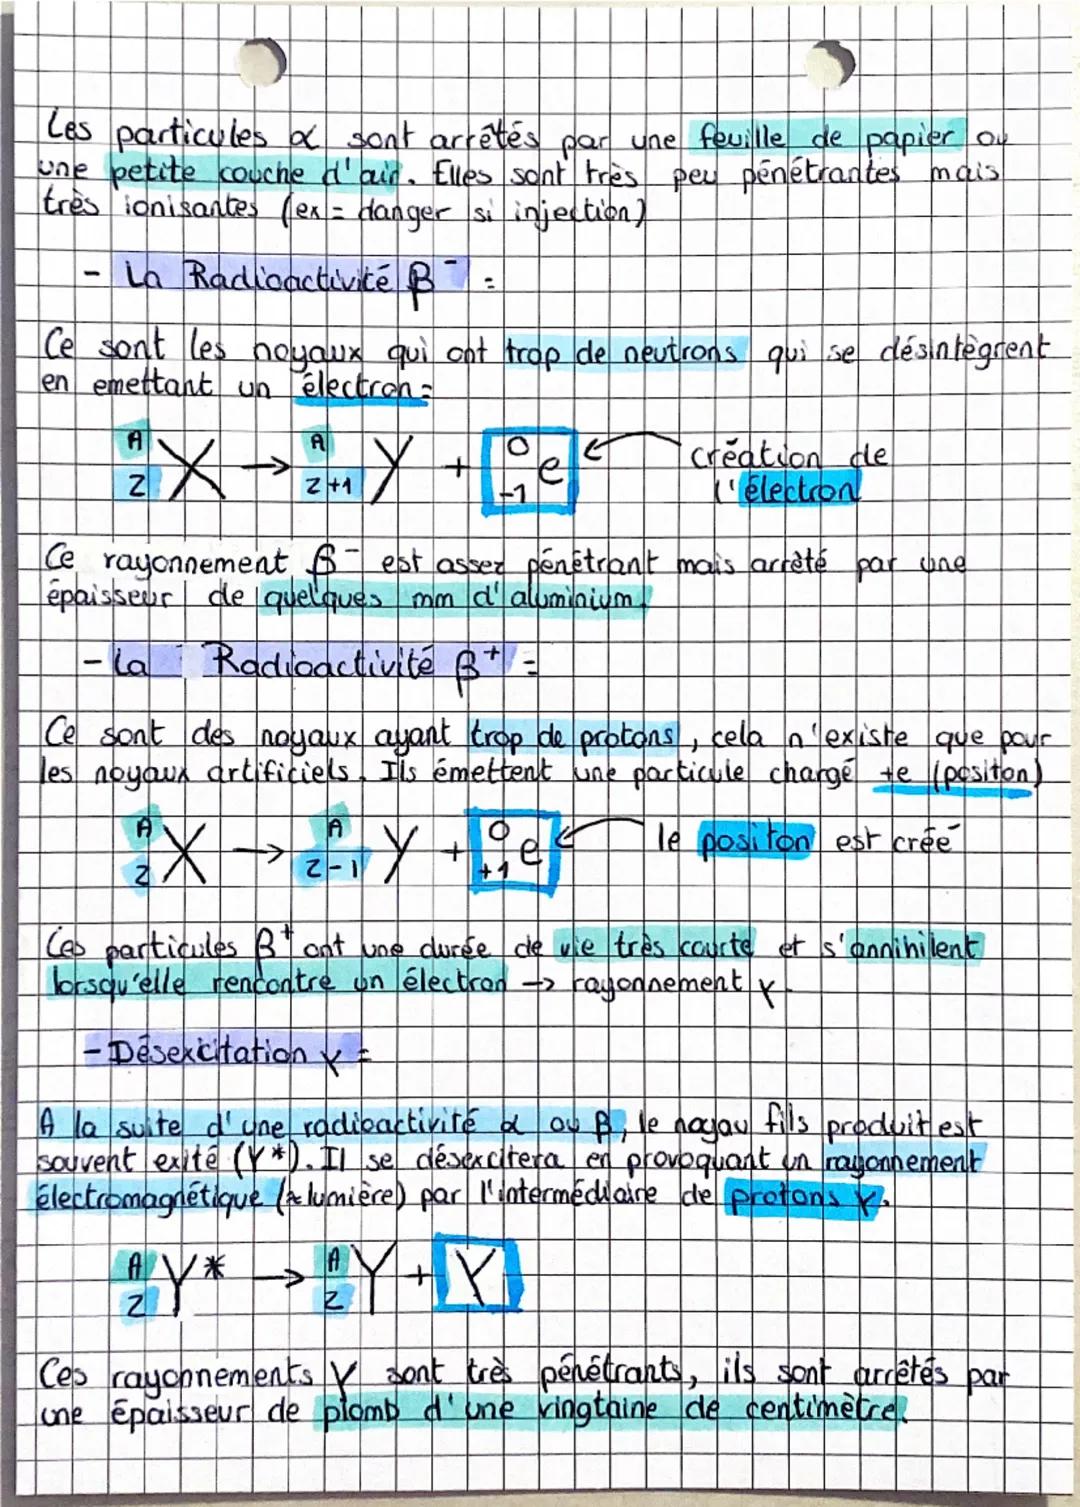 Les particules α sont arrêtés par une feuille de papier ou
une petite couche d'air. Elles sont très peu pénétrantes mais
très ionisantes (ex = danger si injection)
- La Radioactivité β⁻ =
Ce sont les noyaux qui ont trop de neutrons qui se désintègrent
en emettant un électron =
A Z X → A Z+1 Y + 0 -1 e création de
l'électron
Ce rayonnement β⁻ est assez pénétrant mais arrêté par une
épaisseur de quelques mm d'aluminium.
- La Radioactivité β⁺ =
Ce sont des noyaux ayant trop de protons, cela n'existe que pour
les noyaux artificiels. Ils émettent une particule chargé +e (positon)
A Z X → A Z-1 Y + 0 +1 e le positon est créé
Ces particules β⁺ ont une durée de vie très courte et s'annihilent
lorsqu'elle rencontre un électron → rayonnement γ.
- Désexcitation γ =
A la suite d'une radioactivité α ou β, le noyau fils produit est
souvent exité (Y*). Il se désexcitera en provoquant un rayonnement
électromagnétique (≈ lumière) par l'intermédiaire de protons γ.
A Z Y* → A Z Y + γ
Ces rayonnements γ sont très pénétrants, ils sont arrêtés par
une épaisseur de plomb d'une vingtaine de centimètre.